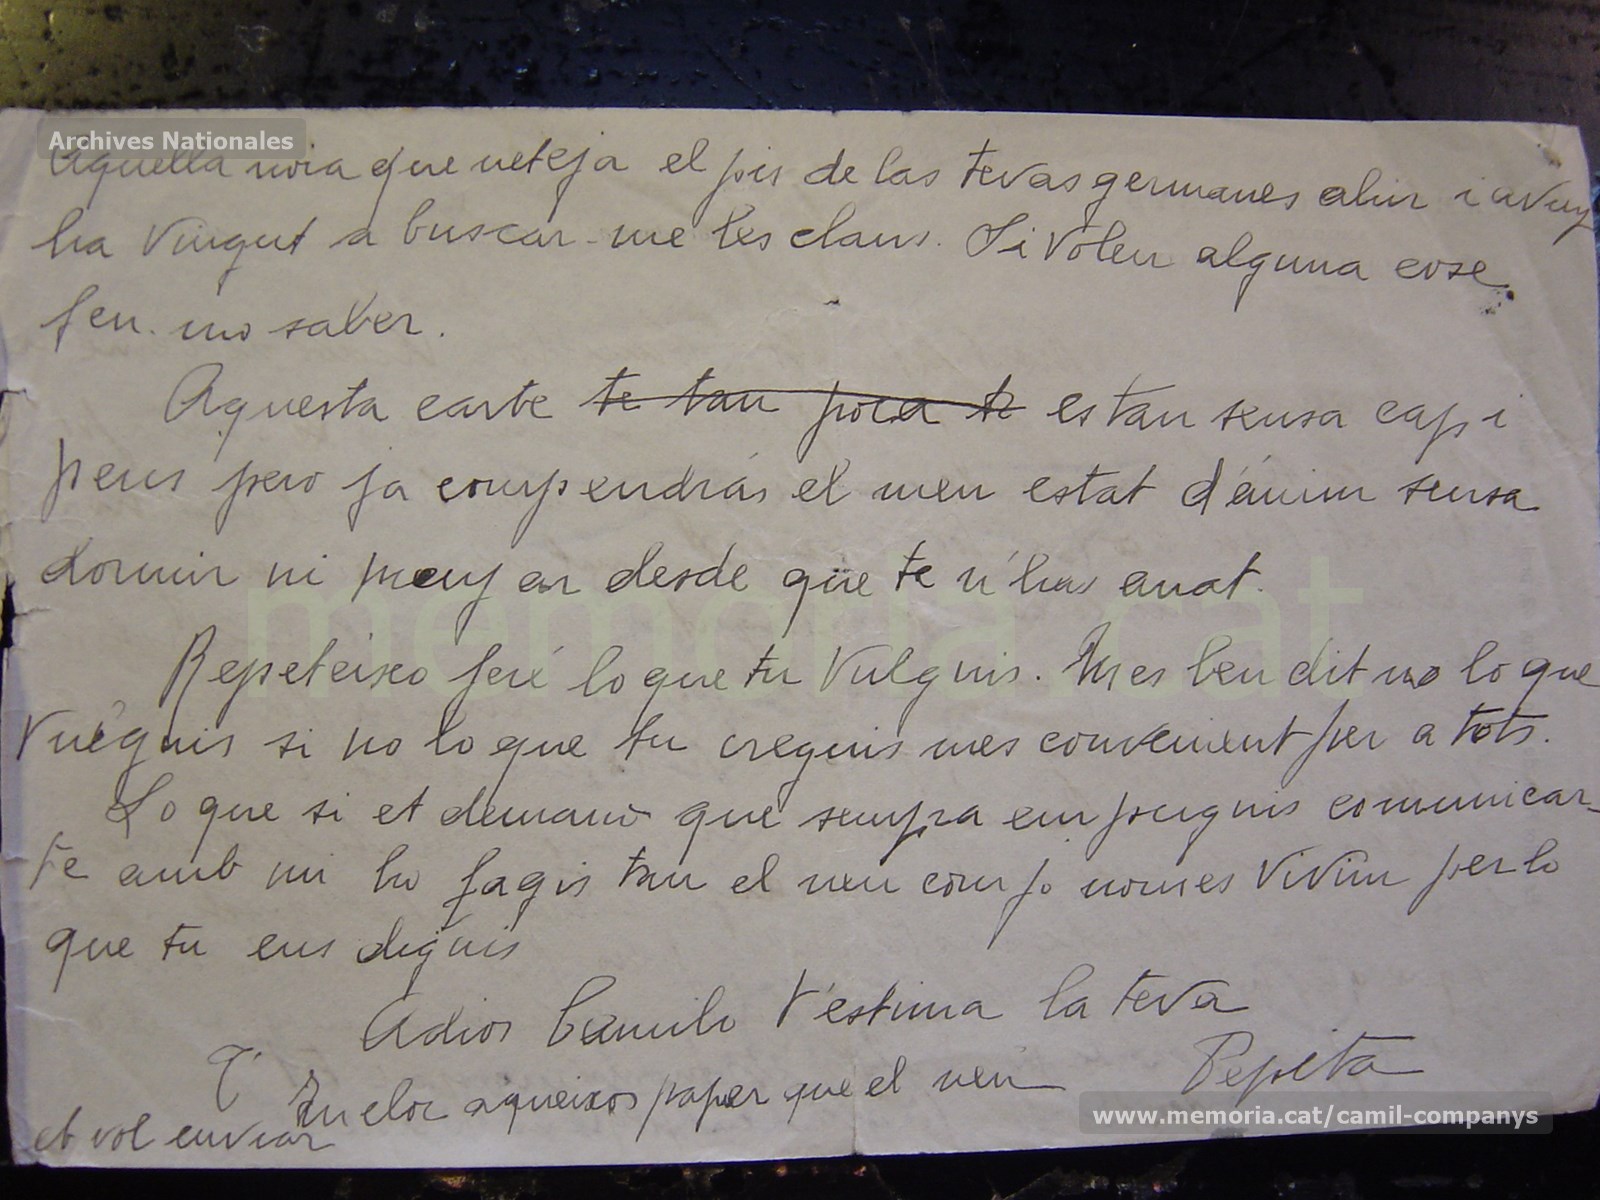 Archives Nationales
Aquella noia que neteja el pis de las tevas germanes ahir i avuy
ha vingut a buscar-me les claus. Si voleu alguna cose
feu-mo saber.
Aquesta carte te tan poca te es tan sensa cap i
peus pero ja compendrás el meu estat d'ánim sensa
dormir ni menjar desde que te n'has anat.
Repeteixo feré lo que tu vulguis. Mes ben dit no lo que
vulguis si no lo que tu creguis mes convenient per a tots.
Lo que si et demano que sempra em puguis comunicar-
te amb mi ho fagis tan el nen com jo nomes vivim per lo
que tu ens diguis
Adios Camilo t'estima la teva
Pepita
T' aqueixos paper que el nen
et vol enviar
www.memoria.cat/camil-companys
memoria.cat